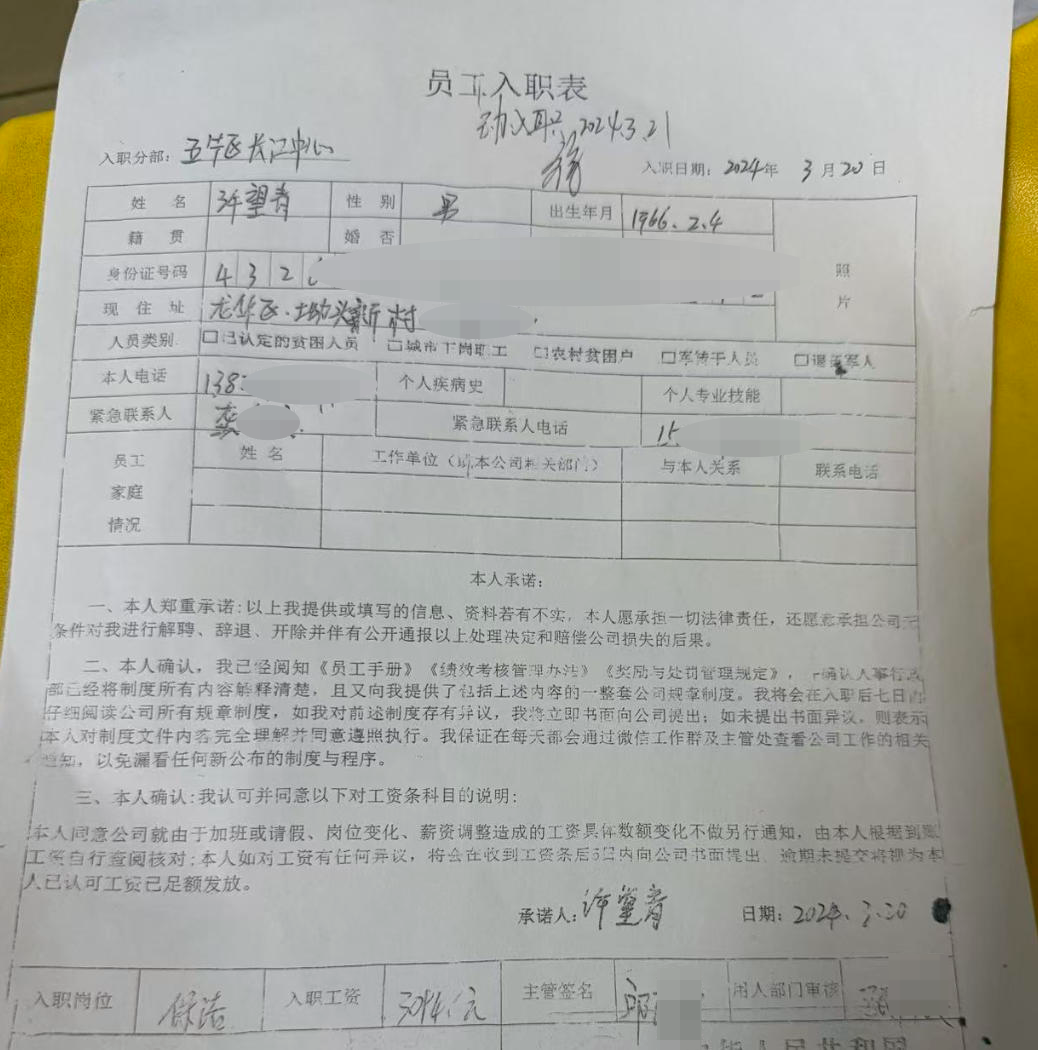 员工入职表
入职 2024.3.21
入职分部：五华区长江中心
入职日期：2024年 3月20日
姓 名 许望青 性 别 男 出生年月 1966.2.4
籍 贯 婚 否
照
片
身份证号码 432
现 住 址 龙华区·坳头新村
人员类别 □已认定的贫困人员 □城市下岗职工 □农村贫困户 □军转干人员 □退伍军人
本人电话 138 个人疾病史 个人专业技能
紧急联系人 紧急联系人电话 15
员工
家庭
情况
姓 名 工作单位（或本公司相关部门） 与本人关系 联系电话
本人承诺：
一、本人郑重承诺：以上我提供或填写的信息、资料若有不实，本人愿承担一切法律责任，还愿意承担公司无
条件对我进行解聘、辞退、开除并伴有公开通报以上处理决定和赔偿公司损失的后果。
二、本人确认，我已经阅知《员工手册》《绩效考核管理办法》《奖励与处罚管理规定》，确认人事行政
部已经将制度所有内容解释清楚，且又向我提供了包括上述内容的一整套公司规章制度。我将会在入职后七日内
仔细阅读公司所有规章制度，如我对前述制度存有异议，我将立即书面向公司提出；如未提出书面异议，则表示
本人对制度文件内容完全理解并同意遵照执行。我保证在每天都会通过微信工作群及主管处查看公司工作的相关
通知，以免漏看任何新公布的制度与程序。
三、本人确认：我认可并同意以下对工资条科目的说明：
本人同意公司就由于加班或请假、岗位变化、薪资调整造成的工资具体数额变化不做另行通知，由本人根据到账
工资自行查阅核对；本人如对工资有任何异议，将会在收到工资条后5日内向公司书面提出、逾期未提交将视为本
人已认可工资已足额发放。
承诺人：许望青 日期：2024.3.20
入职岗位 保洁 入职工资 元 主管签名 邱 用人部门审核